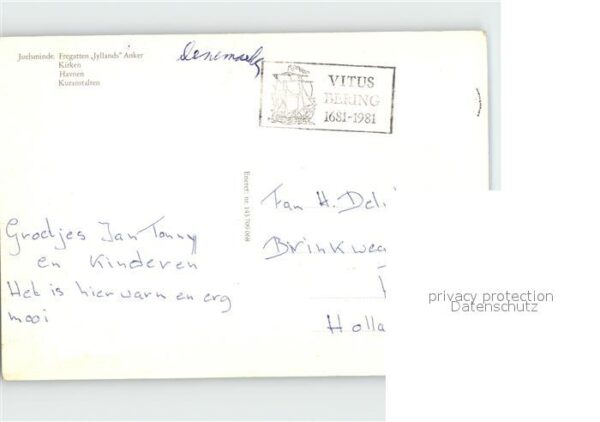 Juelsminde. Fregatten „Jyllands" Anker
Kirken
Havnen
Kuranstalten
Denemark
VITUS
BERING
1681-1981
Eneret: nr. 143 709 068
Fam H. Del
Brinkweg
Holla
Groetjes Jan Tonny
en Kinderen
Het is hier warm en erg
mooi
privacy protection
Datenschutz